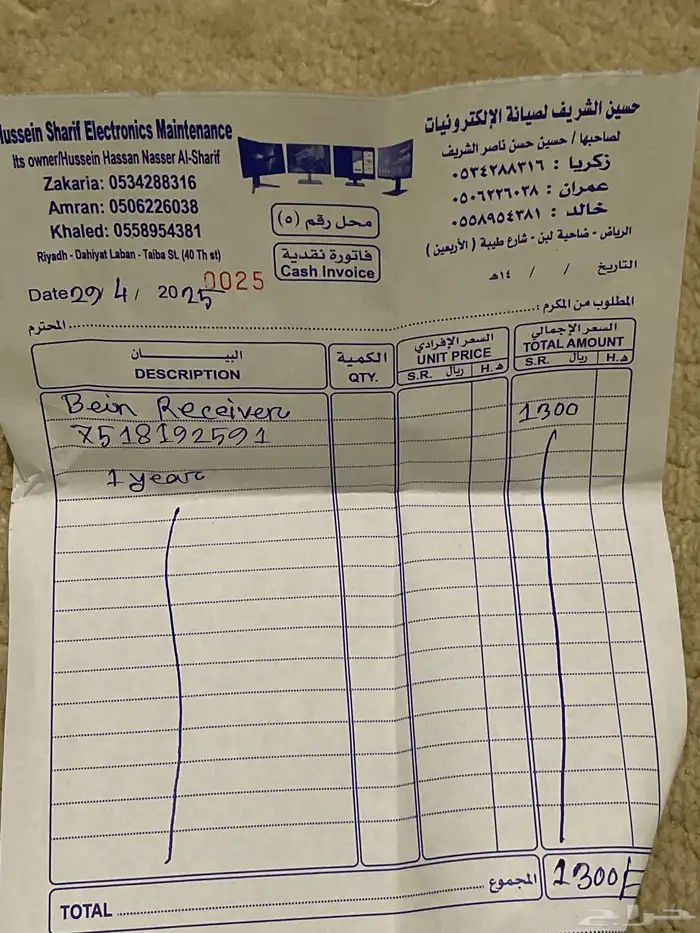 Hussein Sharif Electronics Maintenance
Its owner/Hussein Hassan Nasser Al-Sharif
Zakaria: 0534288316
Amran: 0506226038
Khaled: 0558954381
Riyadh - Dahiyat Laban - Taiba St. (40 Th st)
حسين الشريف لصيانة الإلكترونيات
لصاحبها / حسين حسن ناصر الشريف
زكريا : ٠٥٣٤٢٨٨٣١٦
عمران : ٠٥٠٦٢٢٦٠٣٨
خالد : ٠٥٥٨٩٥٤٣٨١
الرياض - ضاحية لبن - شارع طيبة ( الأربعين )
محل رقم (٥)
فاتورة نقدية
Cash Invoice
0025
Date 29 / 4 / 2025
التاريخ / / ١٤هـ
المطلوب من المكرم : المحترم
البيـــــان الكمية السعر الإفرادي السعر الإجمالي
DESCRIPTION QTY. UNIT PRICE TOTAL AMOUNT
S.R. ريال H. هـ S.R. ريال H. هـ
Bein Receiver 1300
7518192591
1 year
TOTAL المجموع 1300/-
حراج